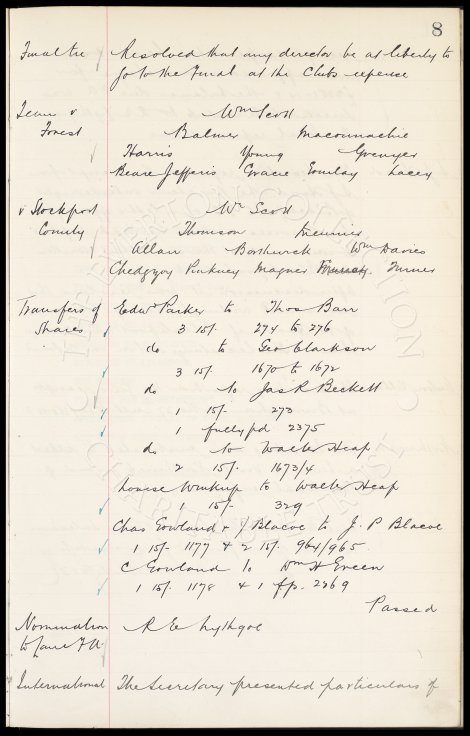 8
Final tie Resolved that any director be at liberty to
go to the Final at the Clubs expense
Team v Wm Scott
Forest Balmer Macconnachie
Harris Young Grenyer
Beare Jefferis Gracie Gourlay Lacey
v Stockport Wm Scott
County Thomson Meunier
Allan Borthwick Wm Davies
Chedgzoy Pinkney Magner Murray. Turner
Transfers of Edwd Parker to Thos Barr
Shares 3 15/- 274 to 276
do to Geo Clarkson
3 15/- 1670 to 1672
do to Jas R Beckett
1 15/- 273
1 fully pd 2375
do to Walter Heap
2 15/- 1673/4
Louise Winkup to Walter Heap
1 15/- 329
Chas Gowland & J Blacoe to J. P Blacoe
1 15/- 1177 & 2 15/- 964/965.
C Gowland to Wm H Green
1 15/- 1178 & 1 fp. 2369
Passed
Nomination R E Lythgoe
to Lanc F A.
International The Secretary presented particulars of